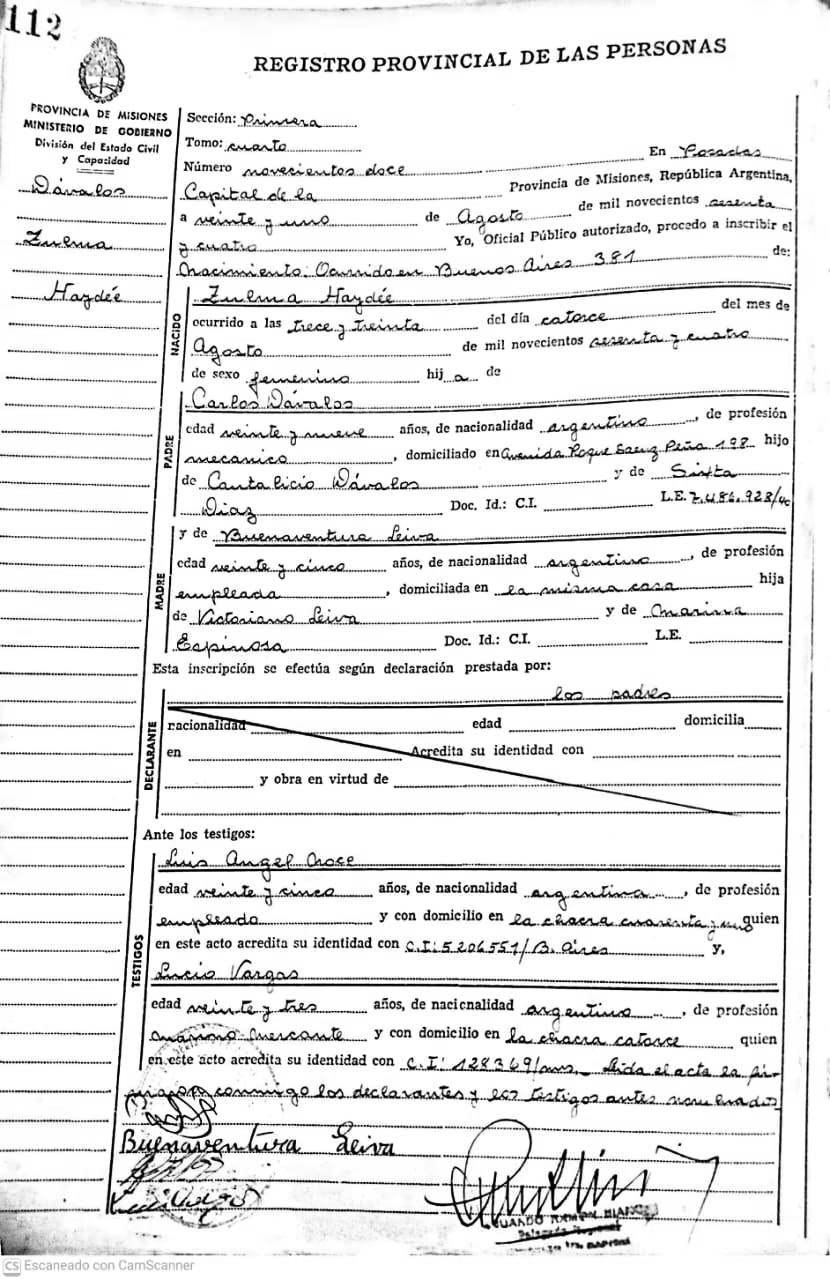 112
REGISTRO PROVINCIAL DE LAS PERSONAS
PROVINCIA DE MISIONES
MINISTERIO DE GOBIERNO
División del Estado Civil
y Capacidad
Dávalos
Zulma
Haydée
Sección: Primera
Tomo: cuarto
Número novecientos doce En Posadas
Capital de la Provincia de Misiones, República Argentina,
a veinte y uno de Agosto de mil novecientos sesenta
y cuatro Yo, Oficial Público autorizado, procedo a inscribir el
Nacimiento: Ocurrido en Buenos Aires 381 de:
NACIDO
Zulma Haydée
ocurrido a las trece y treinta del día catorce del mes de
Agosto de mil novecientos sesenta y cuatro
de sexo femenino hij a de
PADRE
Carlos Dávalos
edad veinte y nueve años, de nacionalidad argentino, de profesión
mecanico, domiciliado en Avenida Roque Saenz Peña 198 hijo
de Cantalicio Dávalos y de Sixta
Diaz Doc. Id.: C.I. L.E. 7.486.928/
MADRE
y de Buenaventura Leiva
edad veinte y cinco años, de nacionalidad argentina, de profesión
empleada, domiciliada en la misma casa hija
de Victoriano Leiva y de Marina
Espinosa Doc. Id.: C.I. L.E.
Esta inscripción se efectúa según declaración prestada por:
los padres
DECLARANTE
nacionalidad edad domicilia
en Acredita su identidad con
y obra en virtud de
Ante los testigos:
TESTIGOS
Luis Angel
edad veinte y cinco años, de nacionalidad argentina, de profesión
empleado y con domicilio en la chacra cuarenta y uno quien
en este acto acredita su identidad con C.I: 5206551/B. Aires y,
Lucio Vargas
edad veinte y tres años, de nacionalidad argentino, de profesión
marino mercante y con domicilio en la chacra catorce quien
en este acto acredita su identidad con C.I: 128369/mns. Leida el acta la fir-
man conmigo los declarantes y los testigos antes nombrados
Buenaventura Leiva
CS Escaneado con CamScanner